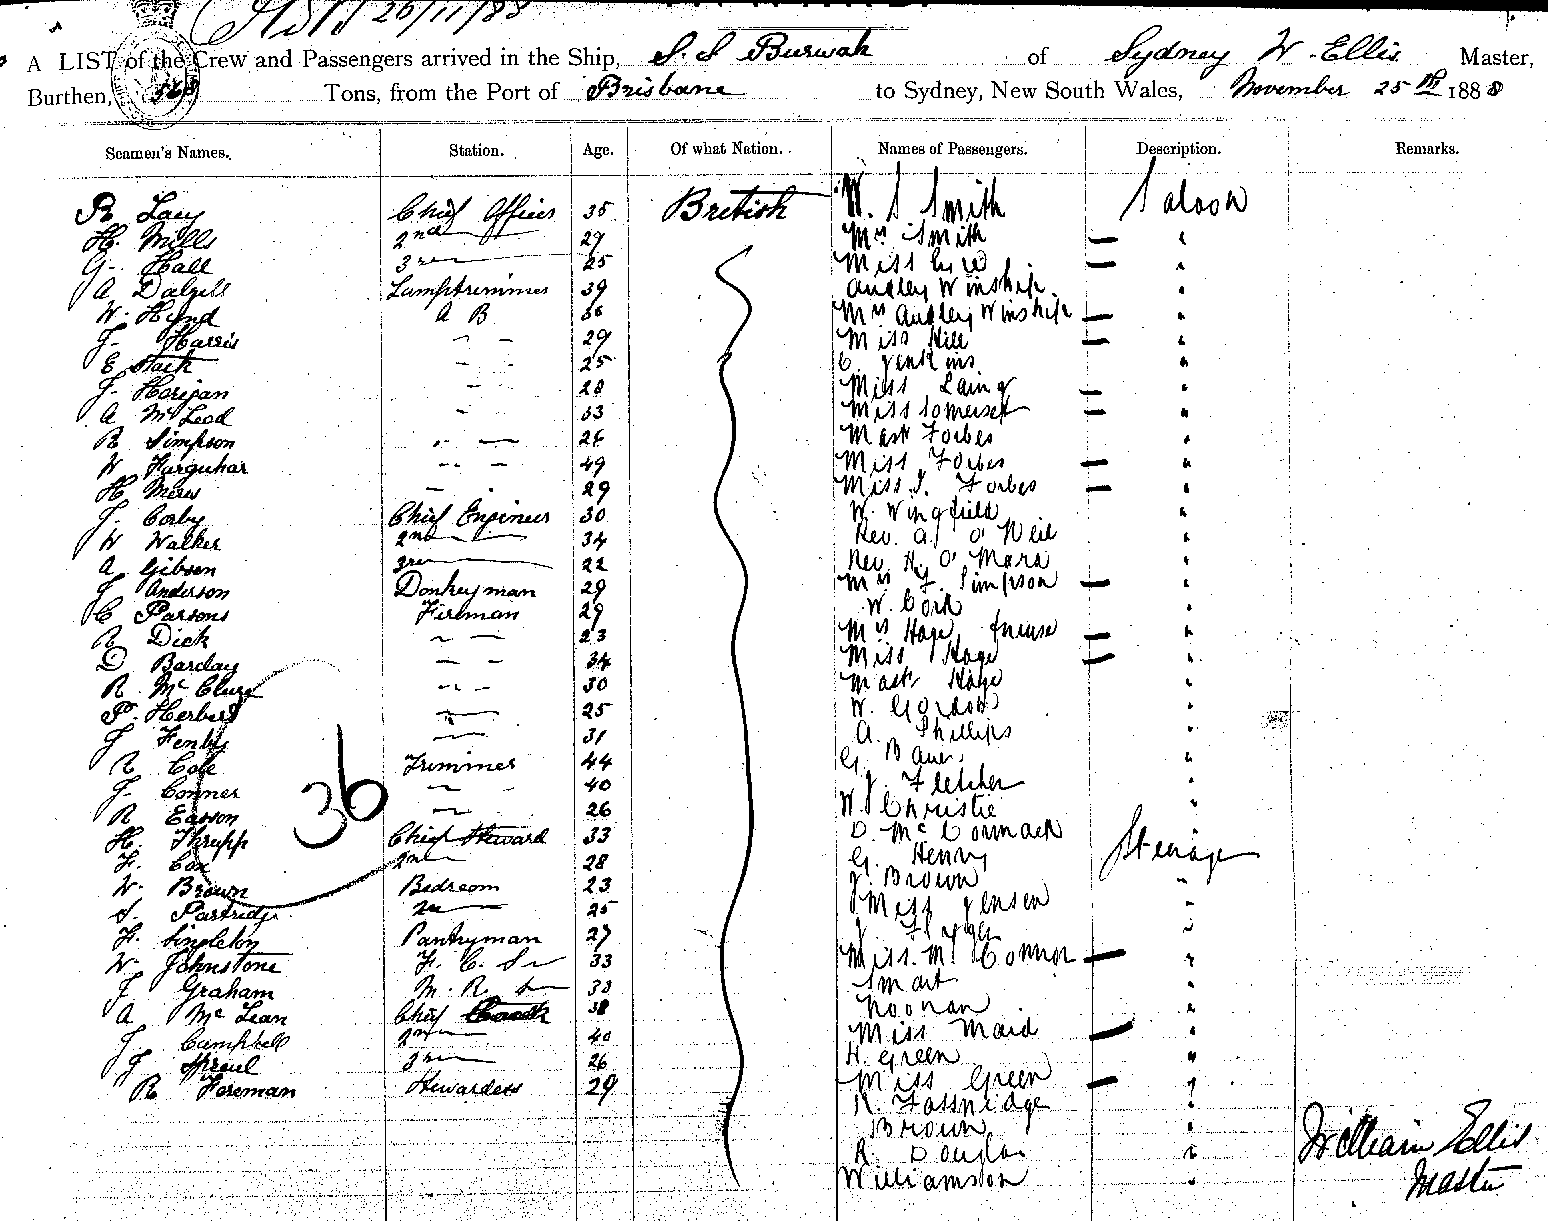 26/11/88
A LIST of the Crew and Passengers arrived in the Ship, S. S Burwah of Sydney W. Ellis Master,
Burthen, 568 Tons, from the Port of Brisbane to Sydney, New South Wales, November 25th 1888
Seamen's Names. Station. Age. Of what Nation. Names of Passengers. Description. Remarks.
R Lacy Chief Officer 35 British W. S Smith Saloon
H. Mills 2nd 29 Mrs Smith "
G. Hall 3rd 25 Miss "
A Dalzell Lamptrimmer 39 Audley Winship "
W. Hynd A B Mrs Audley Winship "
J. Harris " " 29 Miss Hill "
E Stack " 25 C. Jenkins "
J. Horigan " 28 Miss Laing "
A McLeod " 33 Miss Somerset "
R Simpson " " 26 Mast Forbes "
W Farquhar " " 49 Miss Forbes "
H Meres " " 29 Miss J. Forbes "
J. Corby Chief Engineer 30 W. Wingfield "
W Walker 2nd 34 Rev. A. J O'Neil
A Gibson 3rd 22 Rev. Hy O'Mara "
J Anderson Donkeyman 29 Mrs J. Simpson "
C Parsons Fireman 29 W. Cork "
R Dick " " 23 Mrs Hage "
D Barclay " " 34 Miss Hage "
R McClure " " 30 Mast Hage "
P. Herbert " 25 W. Gordon "
J Fenby " 31 A. Phillips "
R Cole Trimmer 44 G. Bauer "
J. Conner " 40 J. Fletcher "
R Easson " 26 W. J Christie "
H. Thrupp Chief Steward 33 D. McCormack
F. Cox 2nd 28 G. Henry Steerage
W. Brown Bedroom 23 J. Brown "
S. Partridge 2nd 25 Miss Jensen "
F. Singleton Pantryman 27 J "
W. Johnstone F. C. S 33 Miss. M. Connor "
J Graham M. R. S 33 Smart "
A McLean Chief Cook 38 Noonan "
J. Campbell 2nd 40 Miss Maid "
J Sproul 3rd 26 H. Green "
R Foreman Stewardess 29 Miss Green "
R. "
Brown "
R. Douglas "
Williamson "
36
William Ellis
Master